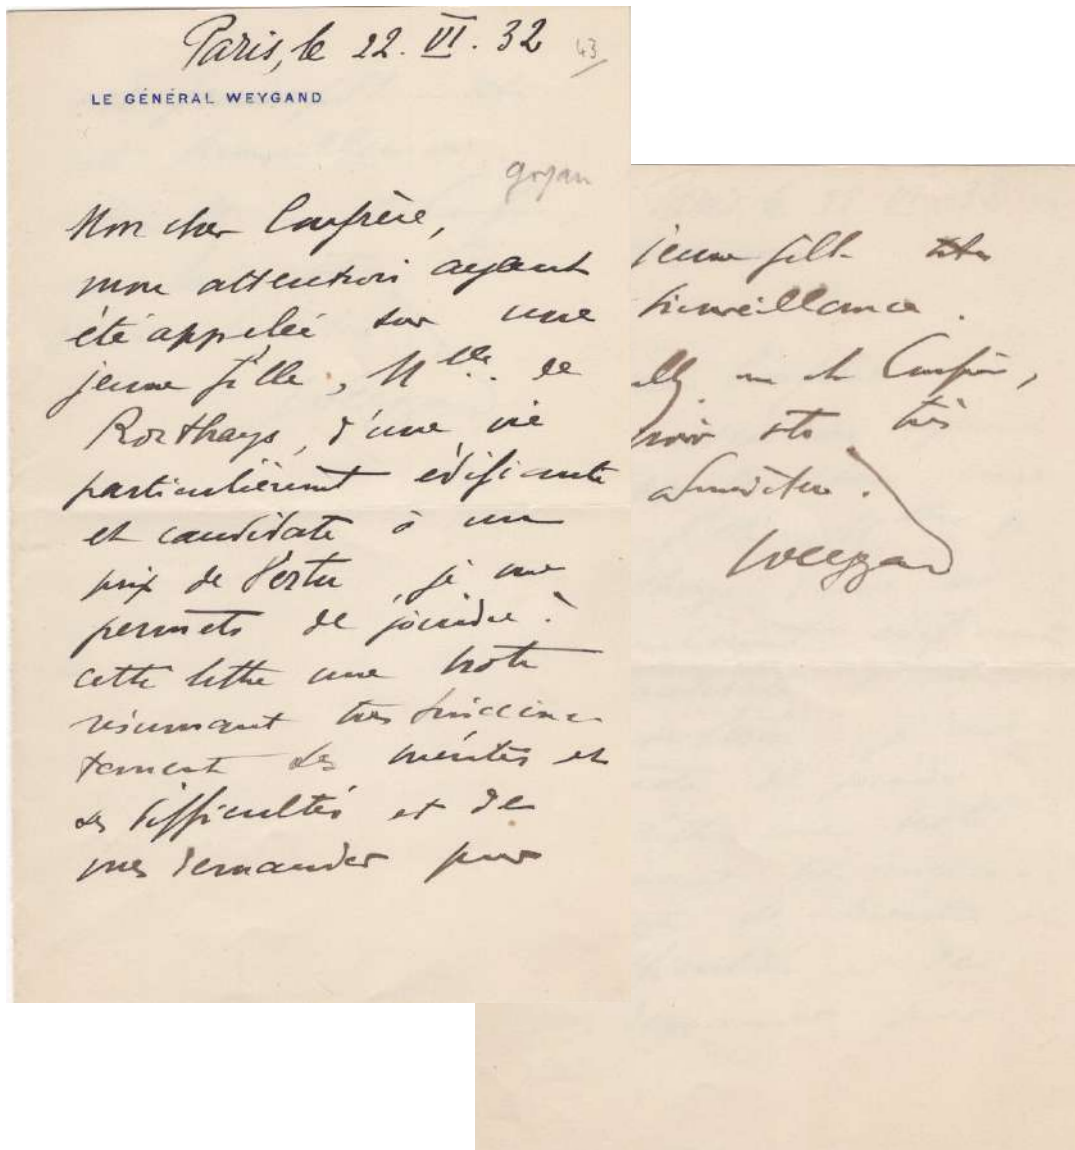 Paris, le 22. VI. 32
43
LE GÉNÉRAL WEYGAND
goyau
Mon cher Confrère,
mon attention ayant
été appelée sur une
jeune fille, Mlle. de
Rorthays, d'une vie
particulièrement édifiante
et candidate à un
prix de Vertu, je me
permets de joindre à
cette lettre une note
résumant très succinc-
tement ses mérites et
ses difficultés et de
vous demander pour
jeune fille votre
bienveillance.
mon cher Confrère,
très
Weygand